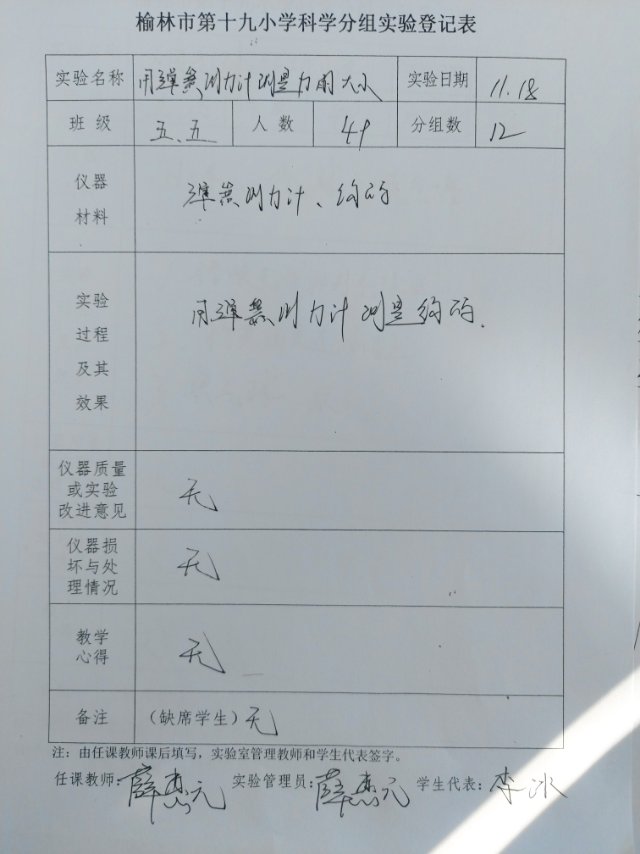 榆林市第十九小学科学分组实验登记表
实验名称 用弹簧测力计测量力的大小 实验日期 11.18
班 级 五.五 人 数 49 分组数 12
仪器
材料
弹簧测力计、钩码
实验
过程
及其
效果
用弹簧测力计测量钩码.
仪器质量
或实验
改进意见
无
仪器损
坏与处
理情况
无
教学
心得
无
备注 (缺席学生) 无
注：由任课教师课后填写，实验室管理教师和学生代表签字。
任课教师: 薛惠元 实验管理员: 薛惠元 学生代表: 李冰